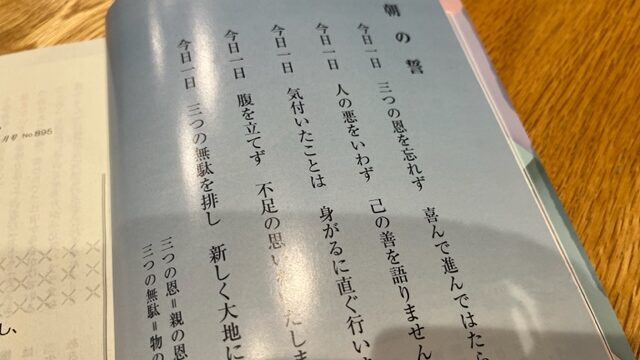 朝の誓
今日一日 三つの恩を忘れず 喜んで進んではたら
今日一日 人の悪をいわず 己の善を語りません
今日一日 気付いたことは 身がるに直ぐ行いま
今日一日 腹を立てず 不足の思い たしま
今日一日 三つの無駄を排し 新しく大地に
三つの恩=親の恩
三つの無駄=物の
月号 No 895
し、